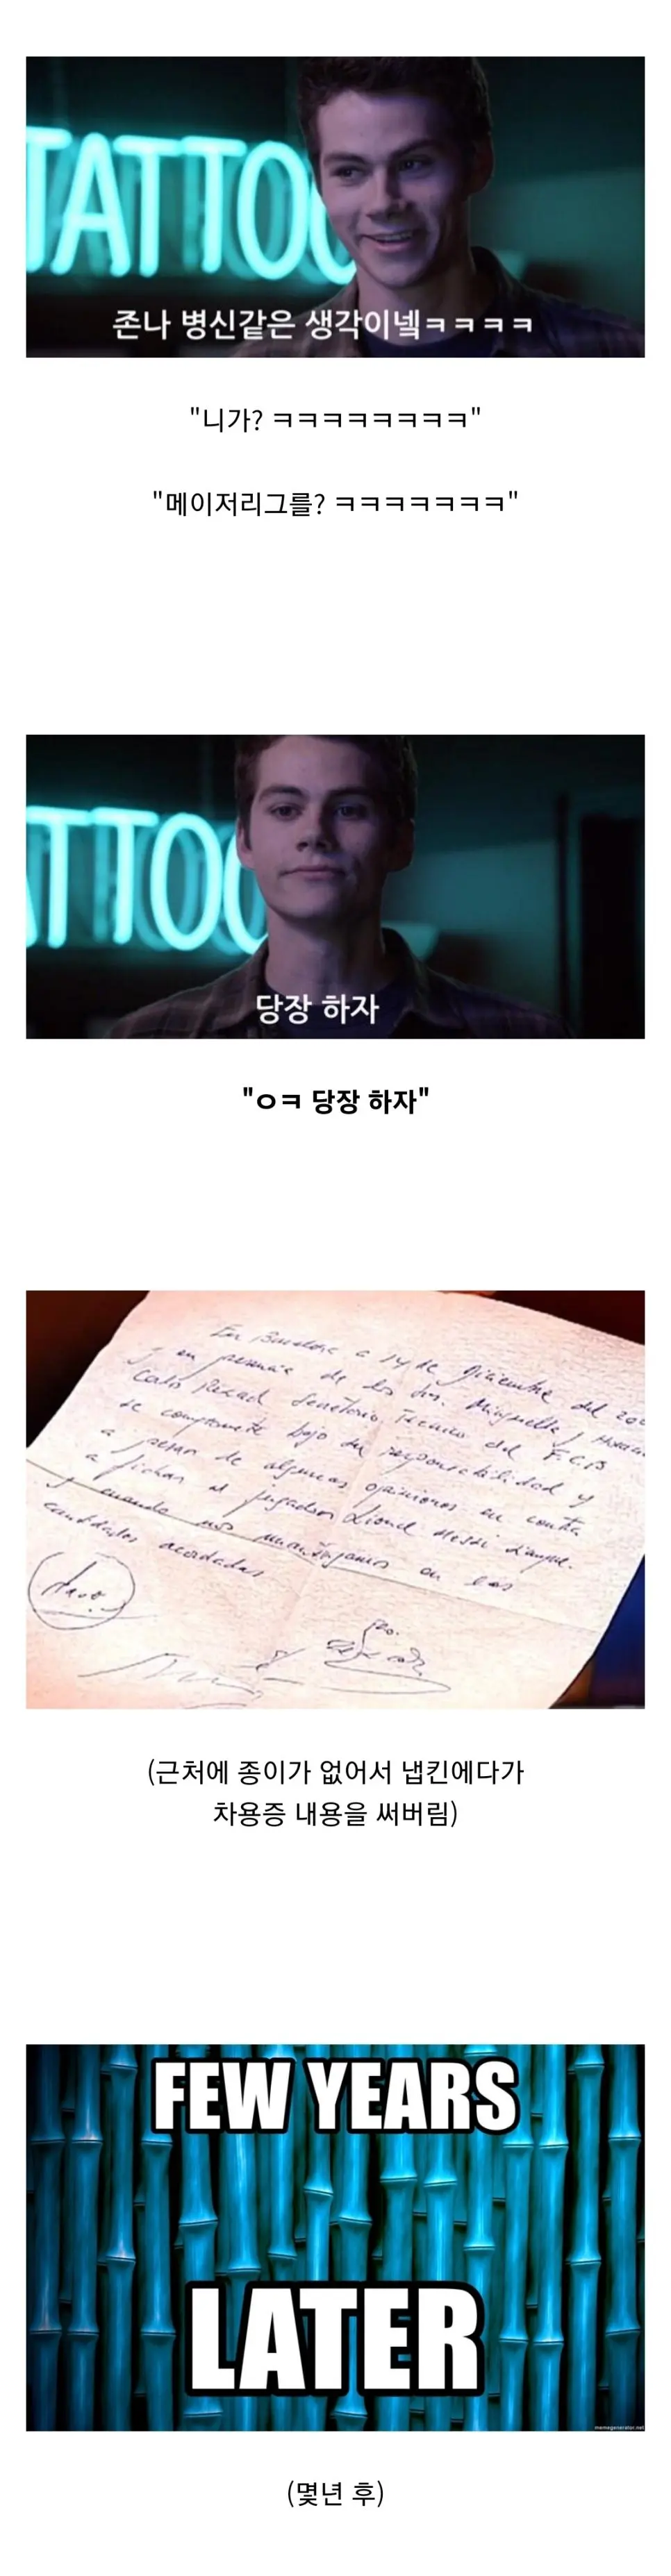 TATTOO
존나 병신같은 생각이넼ㅋㅋㅋㅋ
"니가? ㅋㅋㅋㅋㅋㅋㅋㅋ"
"메이저리그를? ㅋㅋㅋㅋㅋㅋㅋ"
ATTOO
당장 하자
"ㅇㅋ 당장 하자"
En Barcelona a 14 de Diciembre del 20
y en presencia de los Srs. Minguella y
Carles Rexach Secretario Técnico del F.C.B
se compromete bajo su responsabilidad y
a pesar de algunas opiniones en contra
a fichar al jugador Lionel Messi siempre
y cuando nos mantengamos en las
cantidades acordadas
(근처에 종이가 없어서 냅킨에다가
차용증 내용을 써버림)
FEW YEARS
LATER
memegenerator.net
(몇년 후)